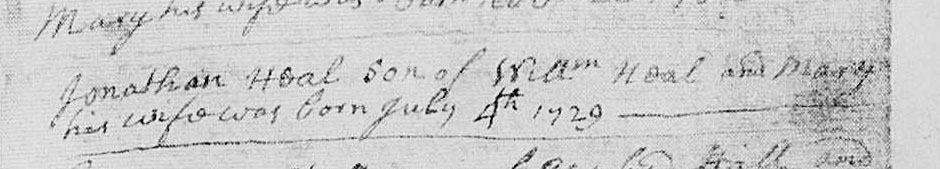 Mary his wife was born
Jonathan Heal son of Willm Heal and Mary
his wife was born July 4th 1729
Hill and